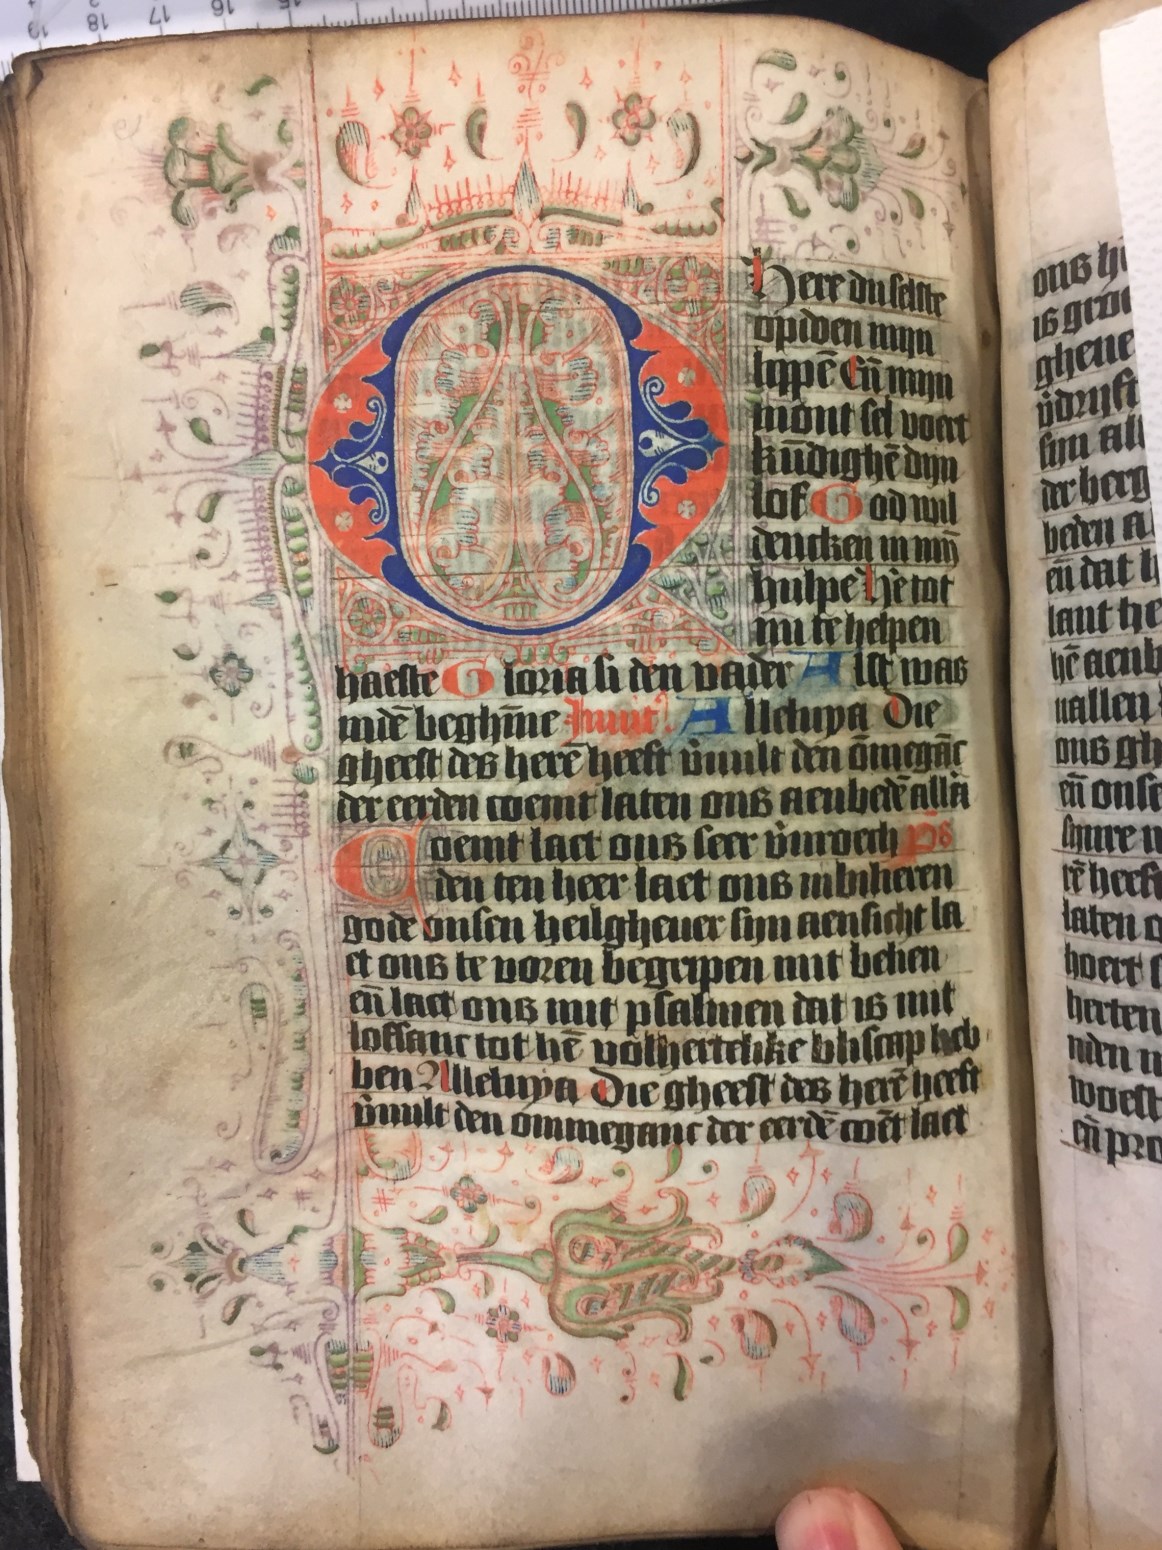 O
Here du selste
opdoen mijn
lippē Eñ mijn
mont sel voert
kūdighē dijn
lof God wil
dencken in mijn
hulpe Hēre tot
mi te helpen
haeste Gloria si den vader Alst was
indē beghīne Inuit'. Alleluya Die
gheest des herē heeft v̄uult den ōmegāc
der eerden coemt laten ons aenbedē alla
Coemt laet ons seer v̄uroech ps
den ten heer laet ons iubiliren
gode onsen heilgheuer sijn aensicht la
et ons te voren begripen mit belien
eñ laet ons mit psalmen dat is mit
loffanc tot hē volhertelike blijscap heb
ben Alleluya Die gheest des herē heeft
v̄uult den ommeganc der eerdē coēt laet
ons
is
gheue
sijn
der berg
beden
eñ dat
laut
vallen
ons gh
eñ onse
laten
hoert
herten
woest
eñ pro
13
15
16
17
18
19